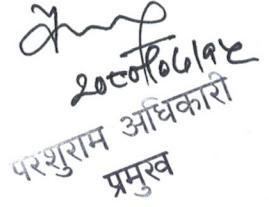 २०८०/०६/१५
परशुराम अधिकारी
प्रमुख